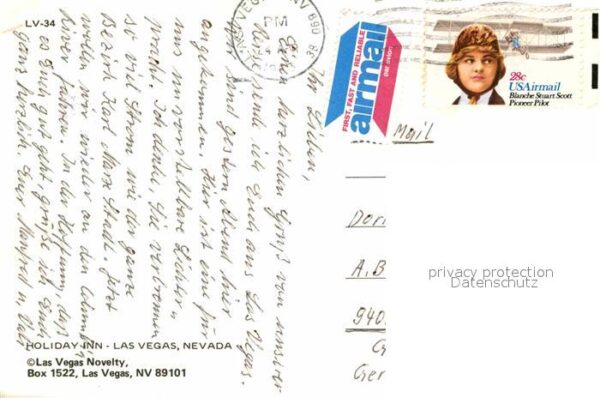 LV-34
LAS VEGAS NV 890
PM
FIRST, FAST AND RELIABLE
airmail
28c
USAirmail
Blanche Stuart Scott
Pioneer Pilot
Mail
Ihr Lieben,
Einen herzlichen Gruß von unserer
Reise sende ich Euch aus Las Vegas.
Wir sind gestern Abend hier
angekommen. Hier ist eine für
uns unvorstellbare Lichter
pracht. Ich denke, Sie verbrennen
so viel Strom wie der ganze
Bezirk Karl Marx Stadt. Jetzt
wollen wir wieder an den
River fahren. In der Hoffnung, daß
es Euch gut geht, grüße ich Euch
ganz herzlich. Euer Manfred
Dori
A.B
940
Ger
privacy protection
Datenschutz
HOLIDAY INN - LAS VEGAS, NEVADA
©Las Vegas Novelty,
Box 1522, Las Vegas, NV 89101